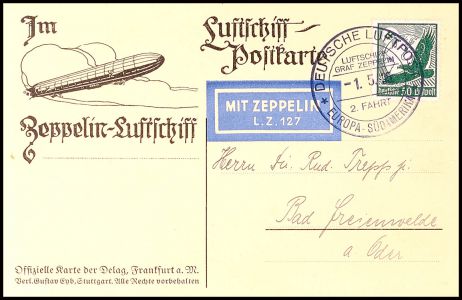 Im
Luftschiff-
Postkarte
Zeppelin-Luftschiff
MIT ZEPPELIN
L.Z. 127
★ DEUSCHE LUFTPO
LUFTSCHIFF
GRAF ZEPPELIN
-1.5.
2. FAHRT
EUROPA-SÜDAMERIKA
Deutsche 50 Luftpost
Herrn Rud. Trepp jr.
Bad Freienwalde
a. Oder
Offizielle Karte der Delag, Frankfurt a. M.
Verl. Gustav Eyb, Stuttgart. Alle Rechte vorbehalten